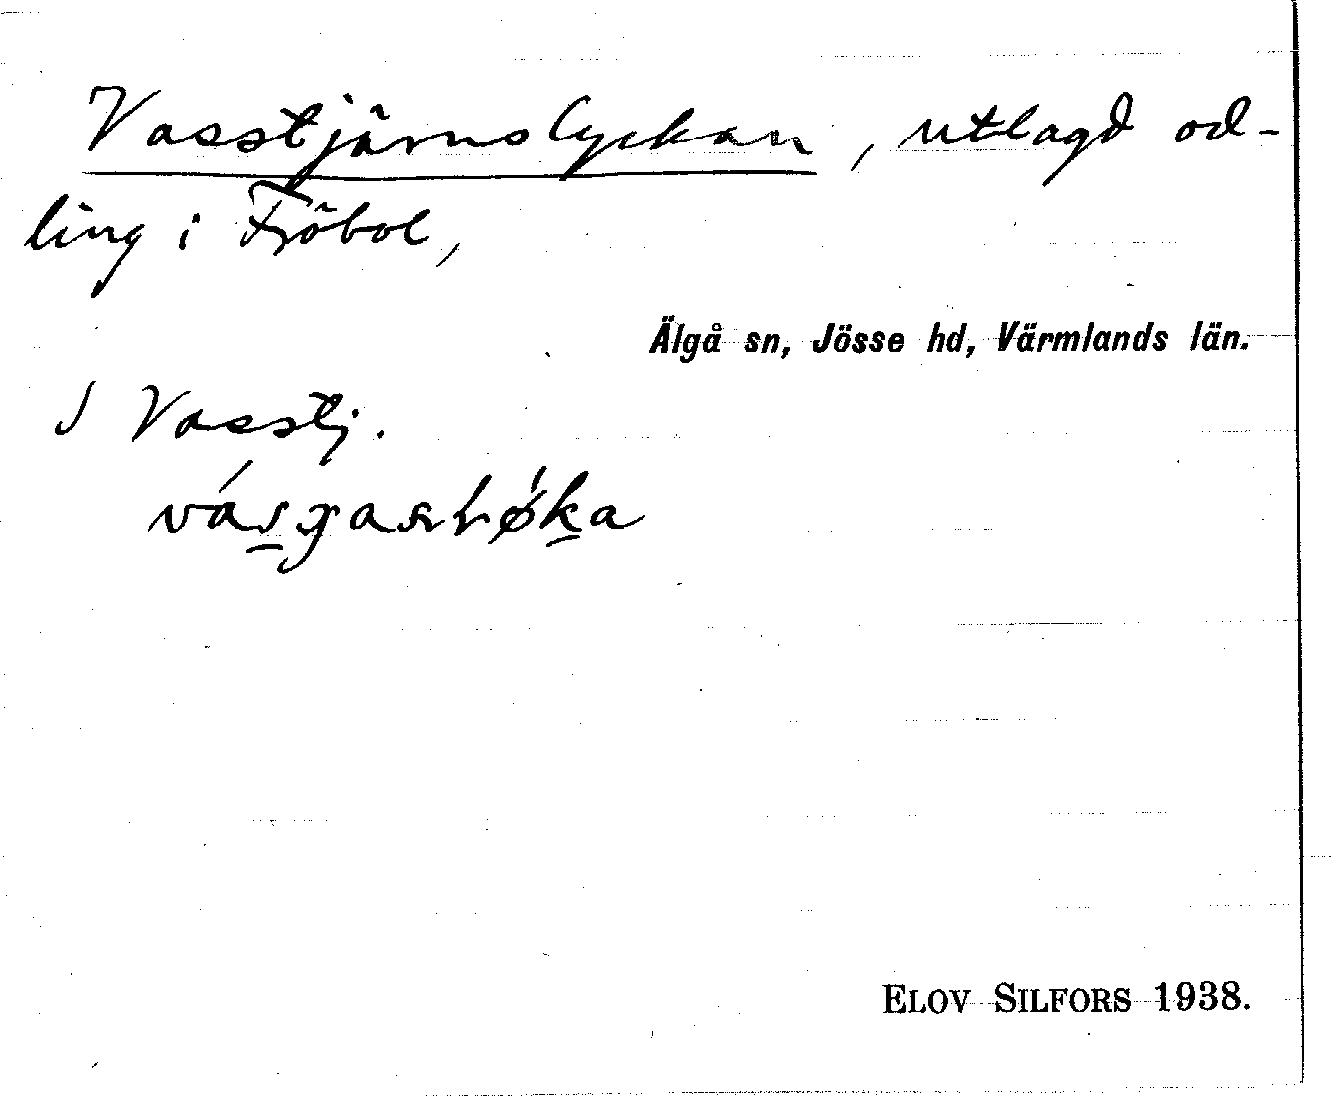 Vasstjärnslyckan, utlagd od-
ling i Fröbol,
Älgå sn, Jösse hd, Värmlands län.
I Vasstj.
ELOV SILFORS 1938.